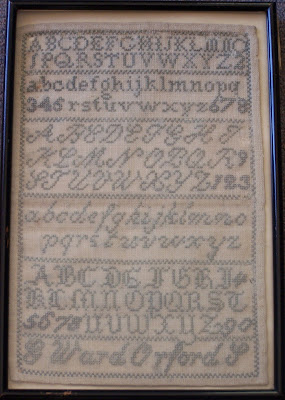 ABCDEFGHIJKLMNO
PQRSTUVWXYZ
abcdefghijklmnopq
345 rstuvwxyz 678
ABCDEFGHI
KLMNOPQR9
STUVWXYZ123
abcdefghijklmno
pqrstuvwxyz
ABCDEFGHI4
KLMNOPQRST
5678UVWXYZ90
Ward Orford